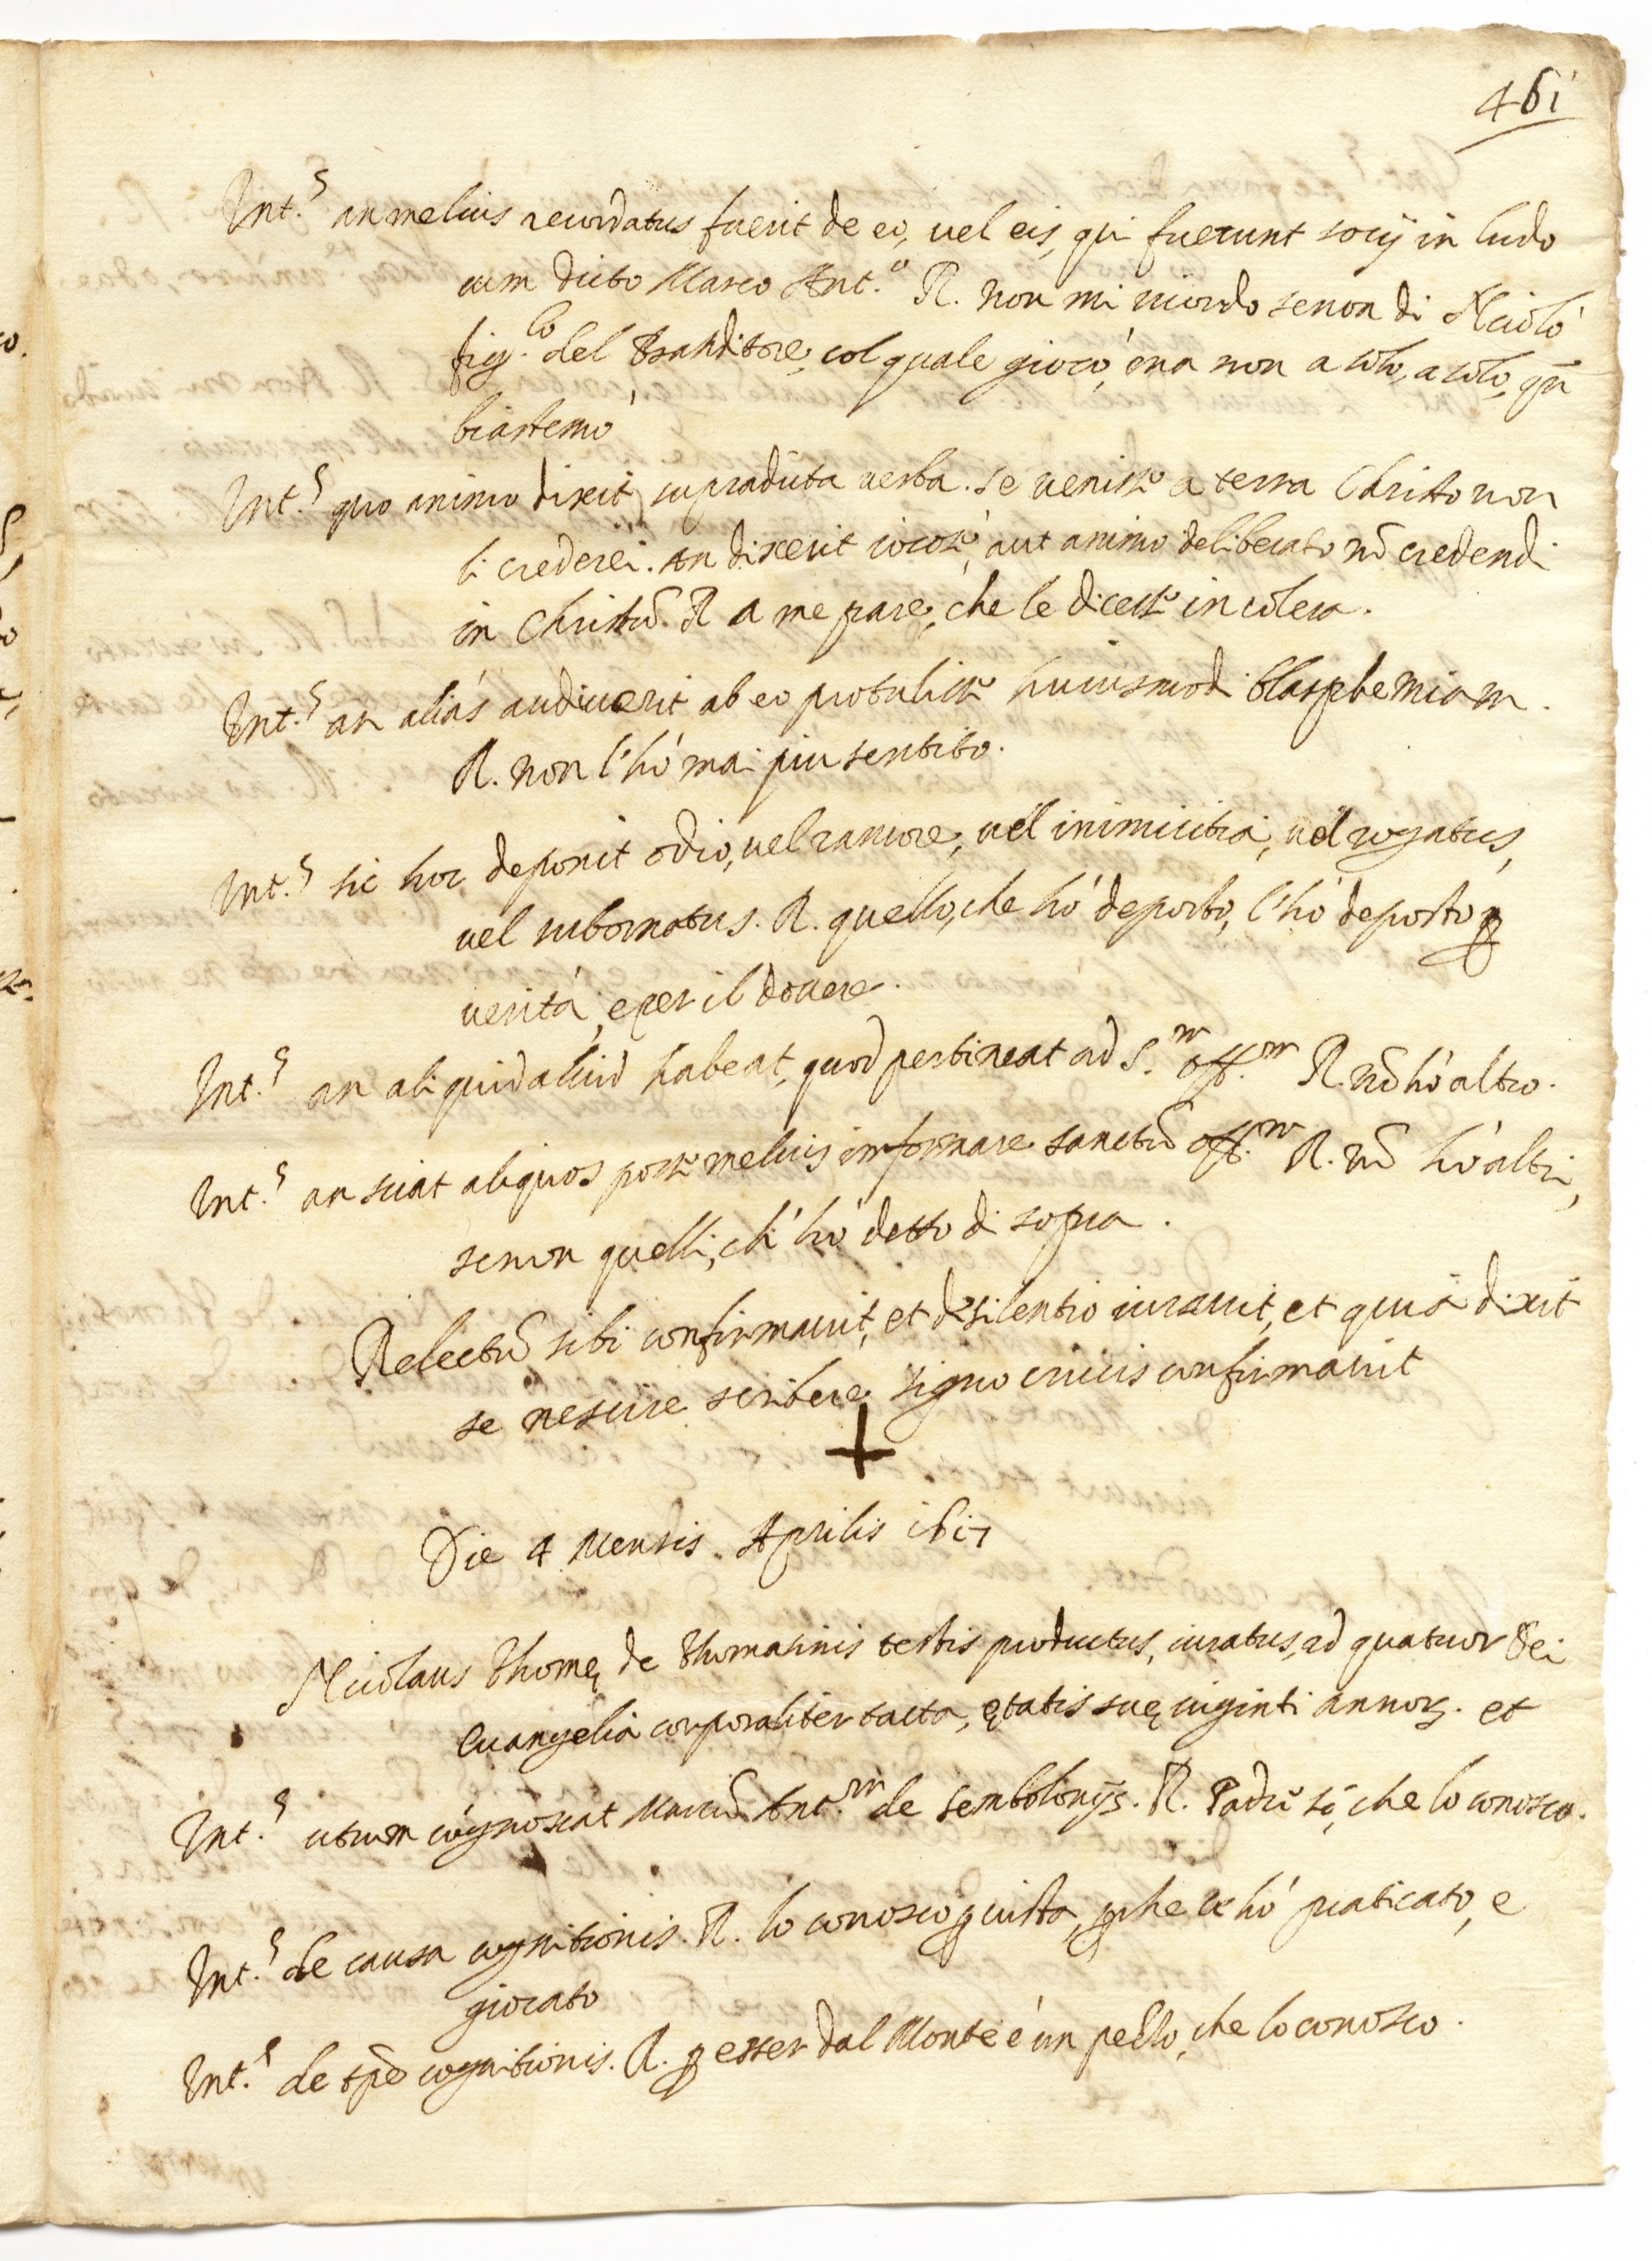 461
Int.s an melius recordatus fuerit de eo, uel eis, qui fuerunt socij in ludo
cum dicto Marco Ant.o R. non mi ricordo senon di Nicolò
fig.lo del Banditore, col quale giocò, ma non a solo, a solo, qñ
biastemò
Int.s quo animo dixit supradicta uerba. se uenisse a terra Christo non
li crederei. An dixerit iocosè, aut animo deliberato nõ credendi
in Christũ. R a me pare, che le dicesse in colera.
Int.s an aliàs audiuerit ab eo protulisse huiusmodi blasphemiam.
R. non l'hò mai piu sentito.
Int.s sic hoc deponit odio, uel rancore, uel inimicitia, uel rogatus,
uel subornatus. R. quello, che hò deposto, l'hò deposto ꝑ
uerità, e per il douere.
Int.s an aliquid aliud habeat, quod pertineat ad S.m off.m R. nõ hò altro.
Int.s an sciat aliquos posse melius informare sanctũ off.m R. nõ hò altri,
senon quelli, ch' hò detto di sopra.
Relectũ sibi confirmauit, et de silentio iurauit, et quià dixit
se nescire scribere signo crucis confirmauit
+
Die 4 Mensis Aprilis 1617
Nicolaus Thomę de Thomasinis testis productus, iuratus, ad quatuor Dei
Euangelia corporaliter tacta, ętatis suę uiginti annorꝫ. et
Int.s utrum cognoscat Marcũ Ant.m de Sembolonijs. R. Padre sì, che lo conosco.
Int.s de causa cognitionis. R. lo conosco ꝑ uista, ꝑche ce hò praticato, e
giocato
Int.s de tpẽ cognitionis. R. ꝑ esser dal Monte è un pezzo, che lo conosco.